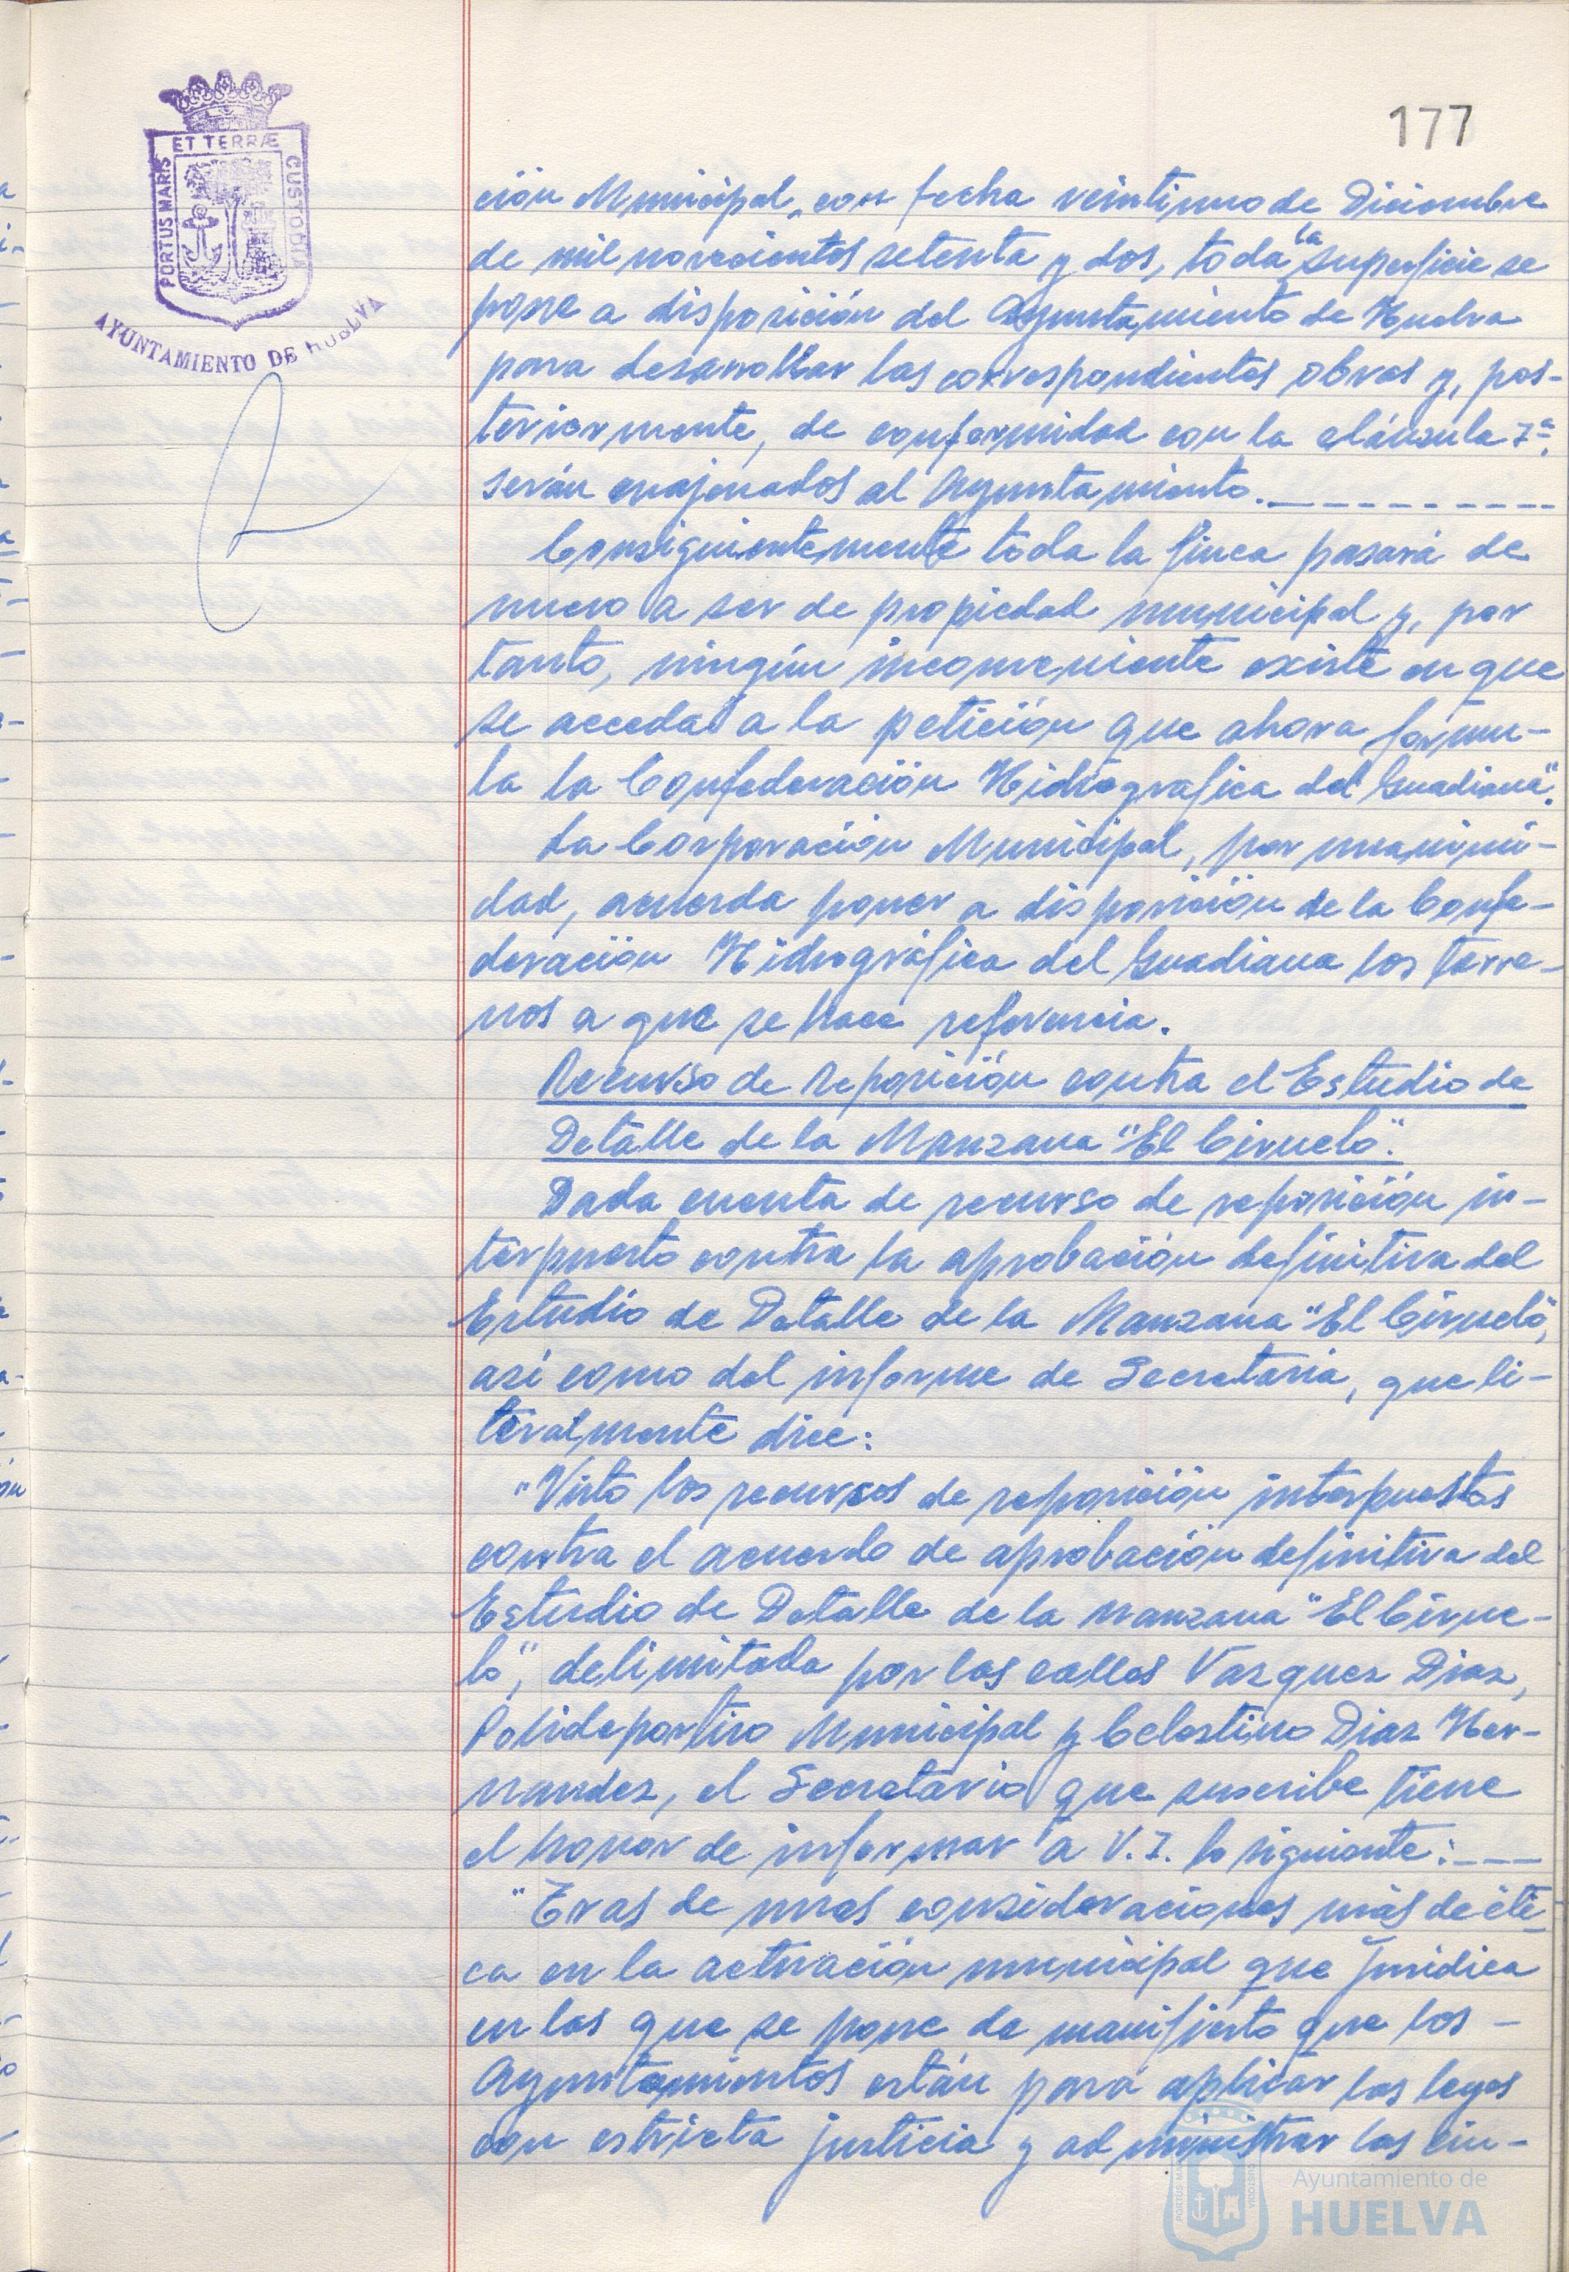 177
ET TERRÆ
PORTUS MARIS
CUSTODIA
AYUNTAMIENTO DE HUELVA
ción Municipal, con fecha veintiuno de Diciembre
de mil novecientos setenta y dos, toda la superficie se
pone a disposición del Ayuntamiento de Huelva
para desarrollar las correspondientes obras y, pos-
teriormente, de conformidad con la cláusula 7ª.
serán enajenados al Ayuntamiento.
Consiguientemente toda la finca pasará de
nuevo a ser de propiedad municipal y, por
tanto, ningún inconveniente existe en que
se acceda a la petición que ahora formu-
la la Confederación Hidrografica del Guadiana".
La Corporación Municipal, por unanimi-
dad, acuerda poner a disposición de la Confe-
deración Hidrográfica del Guadiana los terre-
nos a que se hace referencia.
Recurso de Reposición contra el Estudio de
Detalle de la Manzana "El Ciruelo".
Dada cuenta de recurso de reposición in-
terpuesto contra la aprobación definitiva del
Estudio de Detalle de la Manzana "El Ciruelo",
asi como del informe de Secretaria, que li-
teralmente dice:
"Visto los recursos de reposición interpuestos
contra el acuerdo de aprobación definitiva del
Estudio de Detalle de la manzana "El Cirue-
lo", delimitada por las calles Vazquez Diaz,
Polideportivo Municipal y Celestino Diaz Her-
nandez, el Secretario que suscribe tiene
el honor de informar a V.I. lo siguiente:
"Tras de unas consideraciones más de éti-
ca en la actuación municipal que juridica
en las que se pone de manifiesto que los
Ayuntamientos están para aplicar las leyes
con estricta justicia y administrar las ciu-
Ayuntamiento de
HUELVA